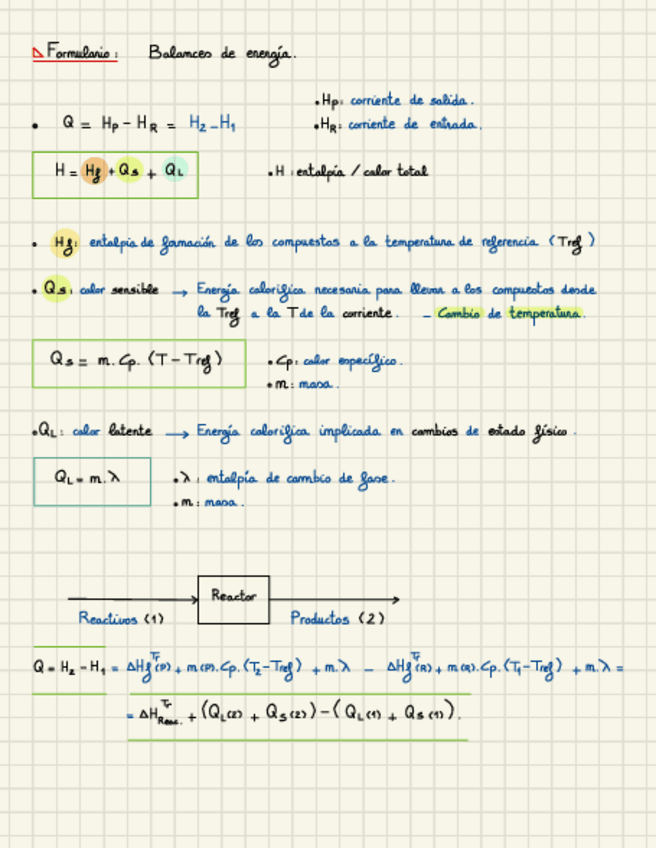 Formulario: Balances de energía.
• Hp: corriente de salida.
• Q = HP - HR = H2 - H1
• HR: corriente de entrada.
H = Hf + Qs + QL
• H: entalpía / calor total
• Hf: entalpía de formación de los compuestos a la temperatura de referencia (Tref)
• Qs: calor sensible → Energía calorífica necesaria para llevar a los compuestos desde
la Tref a la T de la corriente. - Cambio de temperatura.
Qs = m. Cp. (T - Tref)
• Cp: calor específico.
• m: masa.
• QL: calor latente → Energía calorífica implicada en cambios de estado físico.
QL = m. λ
• λ: entalpía de cambio de fase.
• m: masa.
Reactor
Reactivos (1)
Productos (2)
Q = H2 - H1 = ΔHf^Tr(P) + m(P). Cp. (T2 - Tref) + m. λ - ΔHf^Tr(R) + m(R). Cp. (T1 - Tref) + m. λ =
= ΔH^Tr Reac. + (QL(2) + Qs(2)) - (QL(1) + Qs(1)).